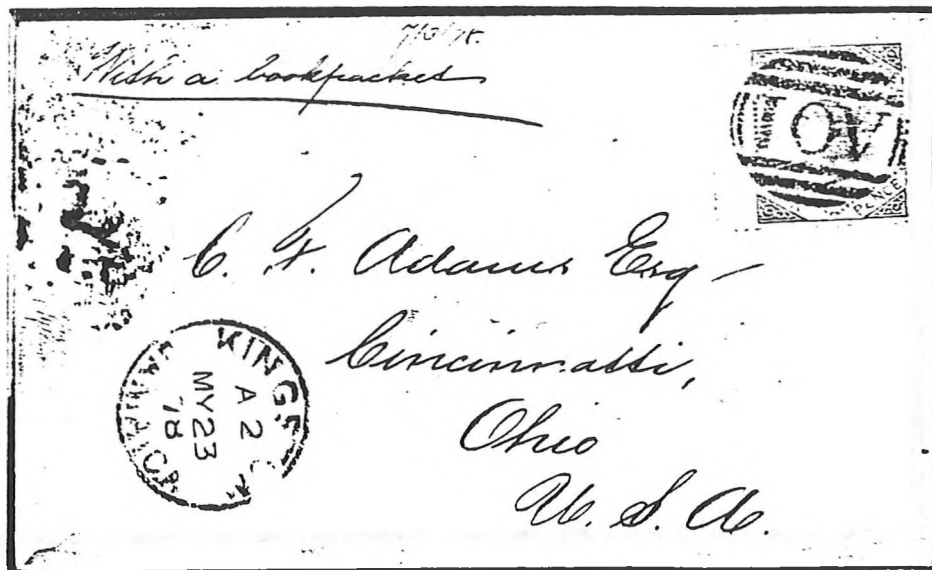 7/6/78.
With a bookpacket
A01
PENCE
C. F. Adams Esq
Cincinnatti,
Ohio
U. S. A.
KINGS
JAMAICA
A 2
MY 23
78